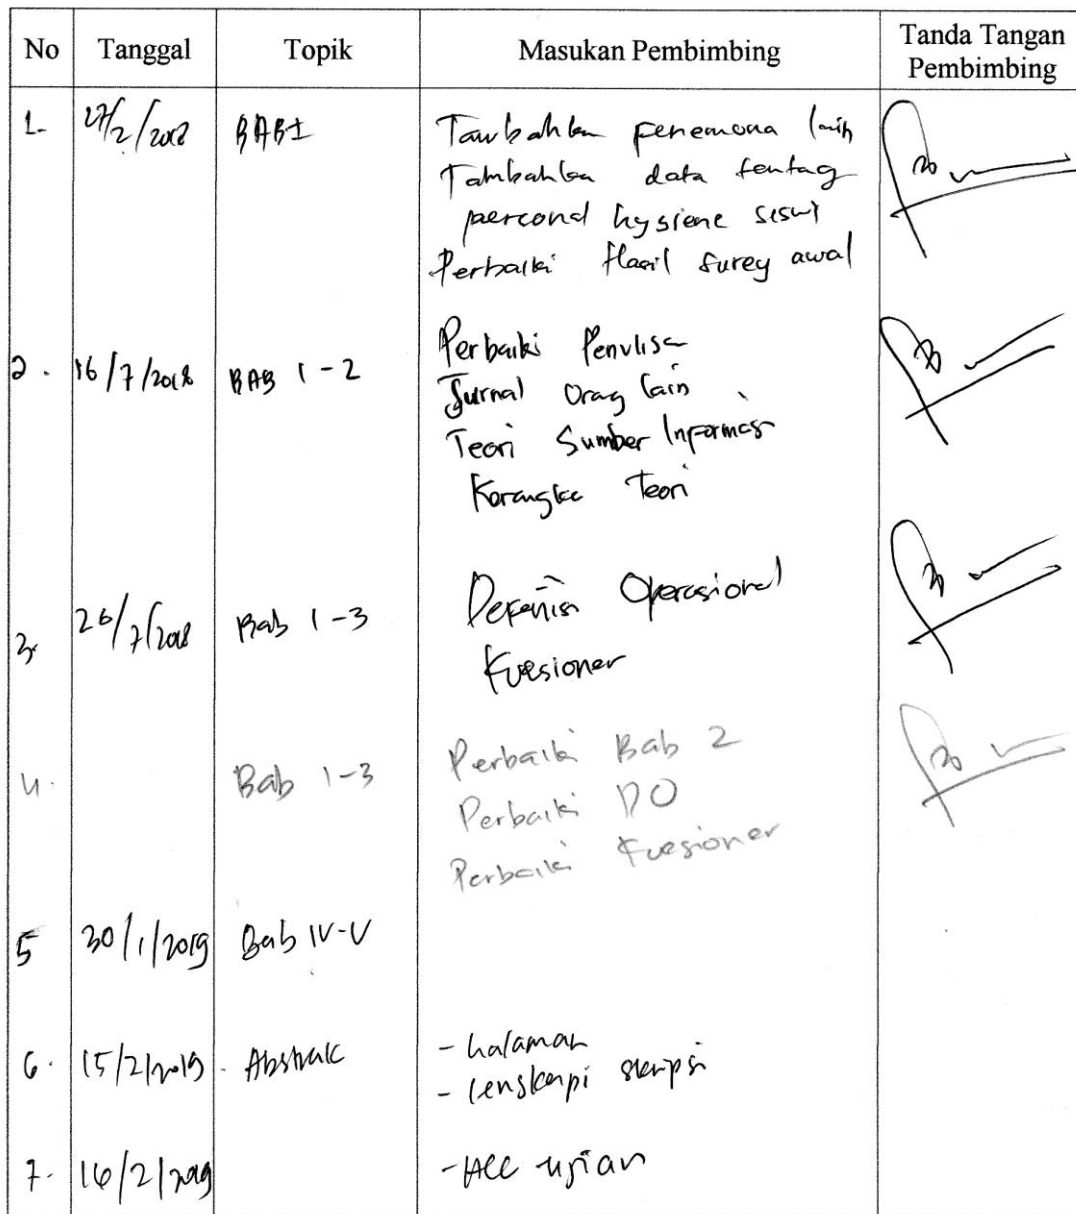 No Tanggal Topik Masukan Pembimbing Tanda Tangan Pembimbing
1. 27/2/2018 BAB I Tambahkan fenemona lain
Tambahkan data tentag
personal hygiene siswi
Perbaiki Hasil surey awal
2. 16/7/2018 BAB 1-2 Perbaiki Penulisa
Jurnal Orag lain
Teori Sumber Informasi
Kerangka Teori
3. 26/7/2018 Bab 1-3 Defenisi Operasional
Kuesioner
4. Bab 1-3 Perbaiki Bab 2
Perbaiki DO
Perbaiki Kuesioner
5 30/1/2019 Bab IV-V
6. 15/2/2019 Abstrak - halaman
- lengkapi skripsi
7. 16/2/2019 - ACC ujian